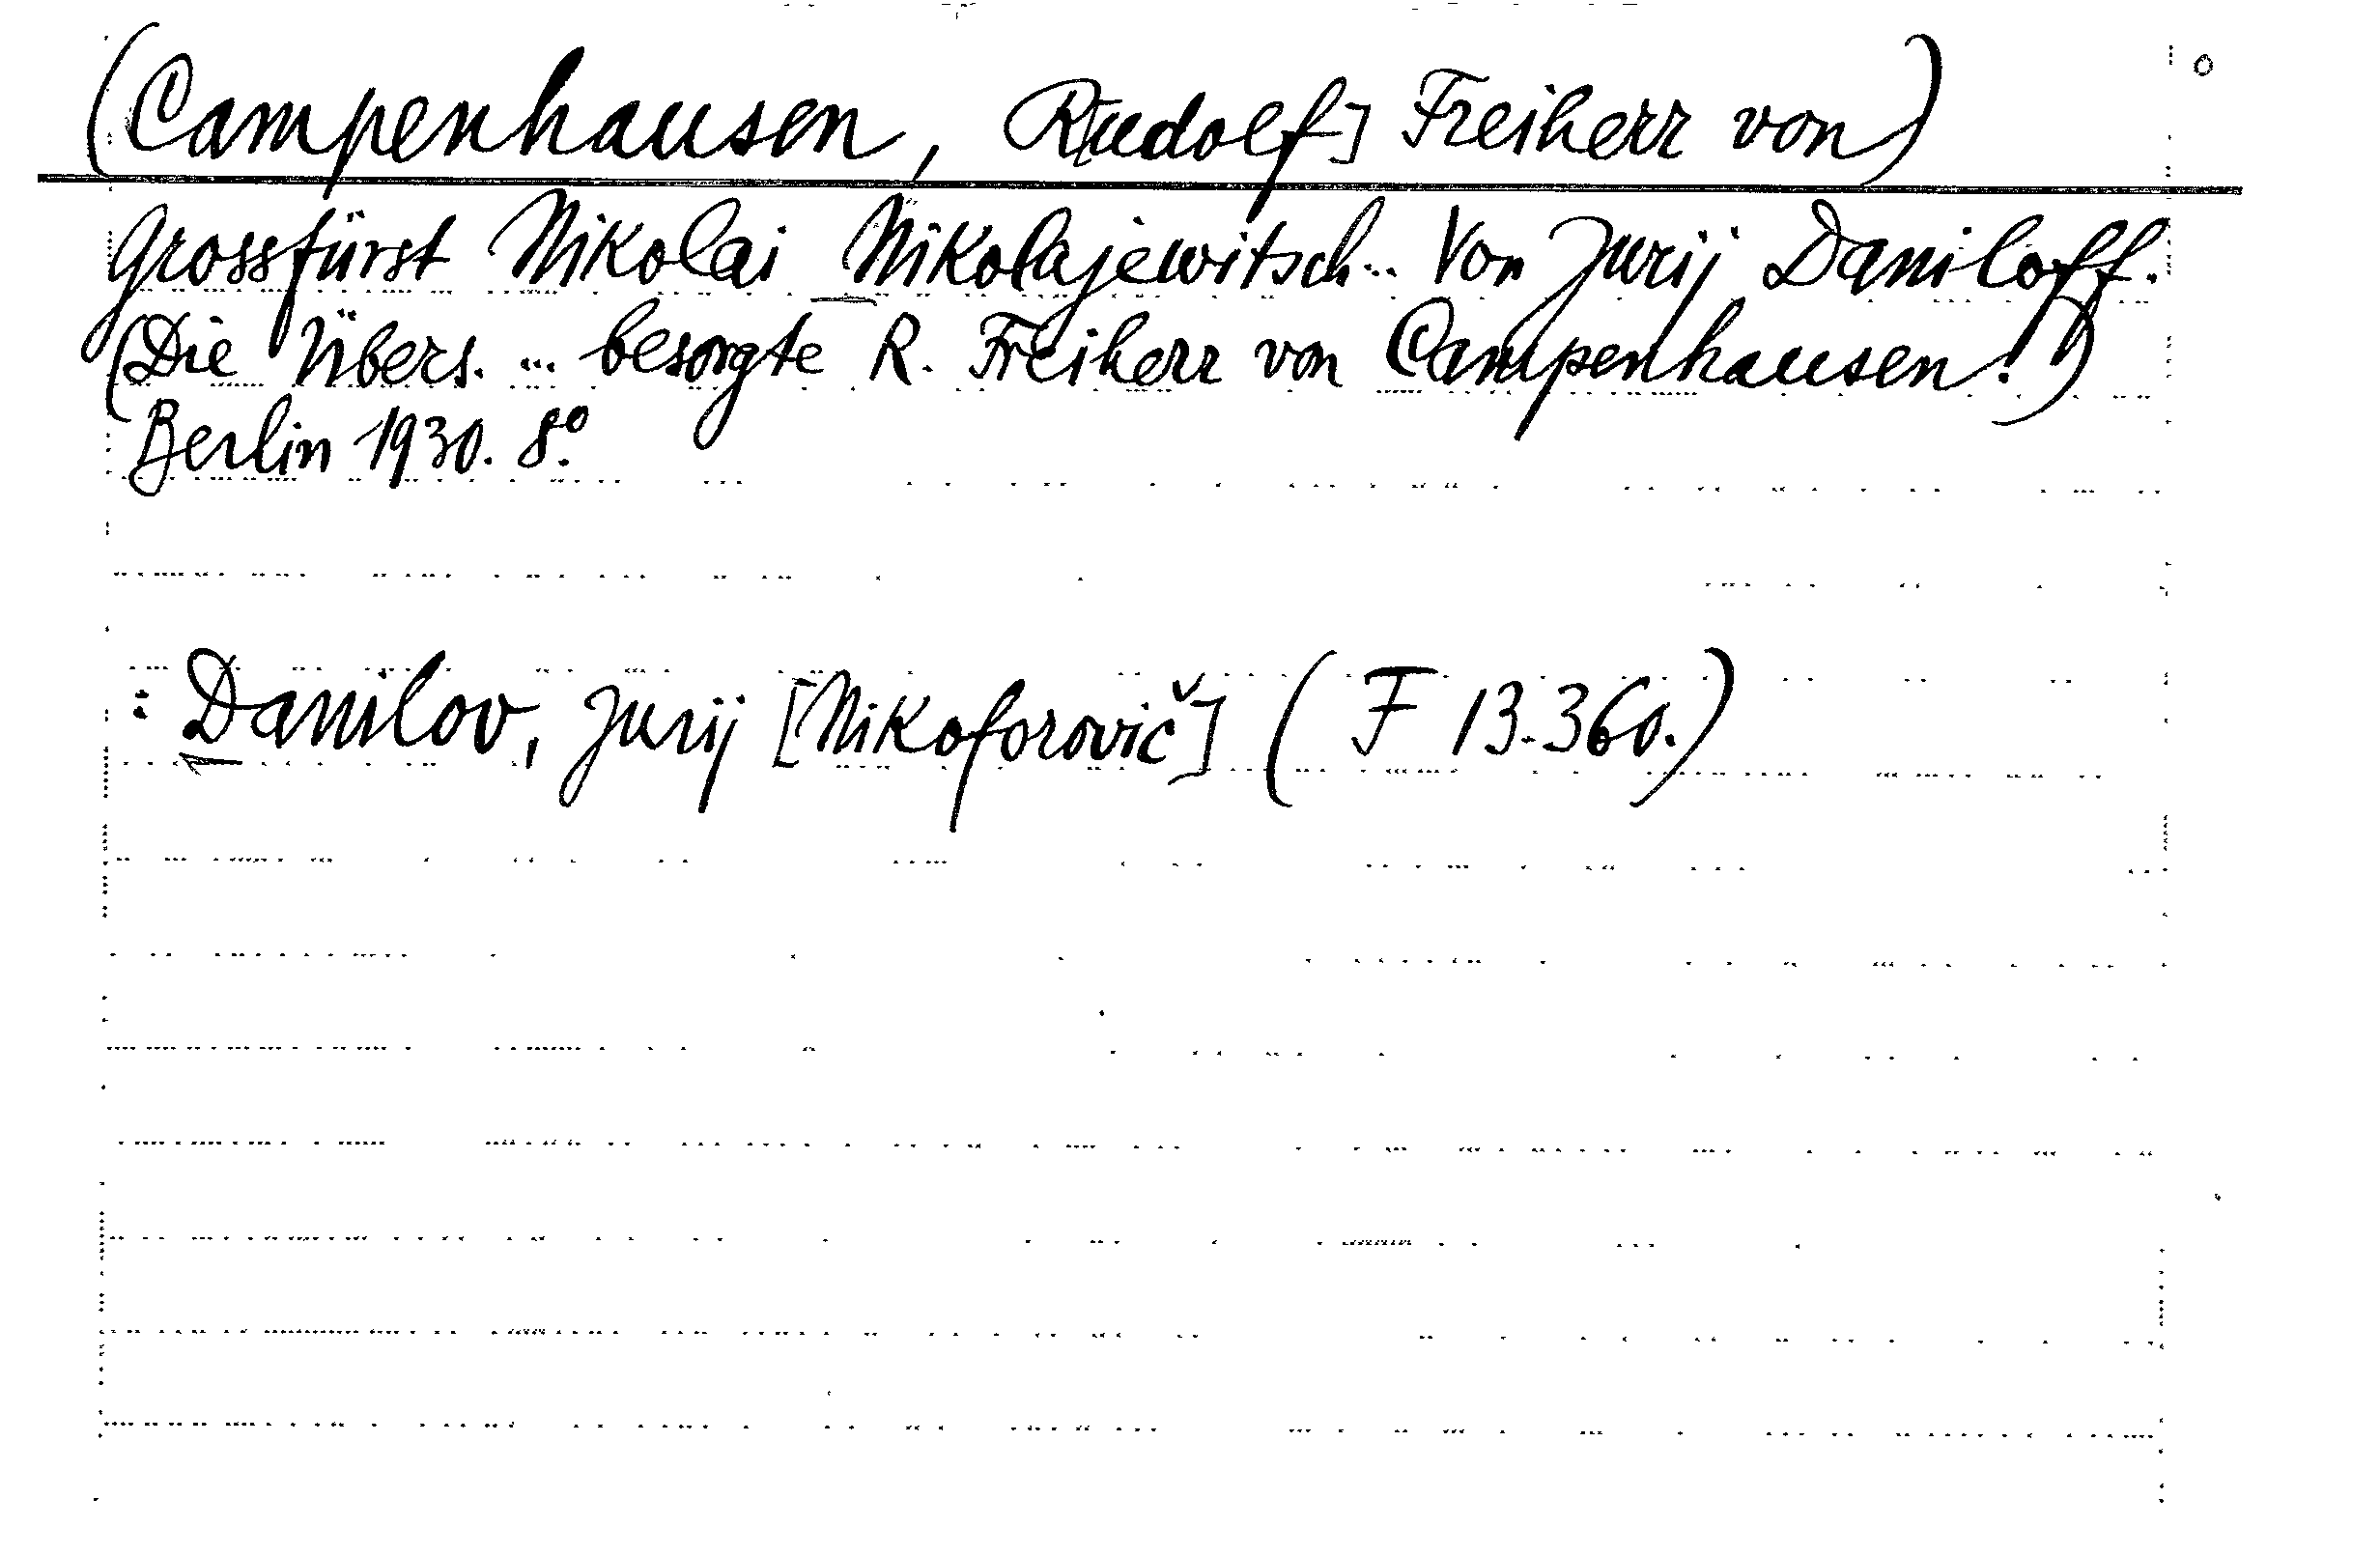 (Campenhausen, R[udolf] Freiherr von)
Grossfürst Nikolai Nikolajewitsch... Von Jurij Daniloff.
(Die Übers. ... besorgte R. Freiherr von Campenhausen.)
Berlin 1930. 8°.
: Danilov, Jurij [Nikoforovič] (F 13.360.)